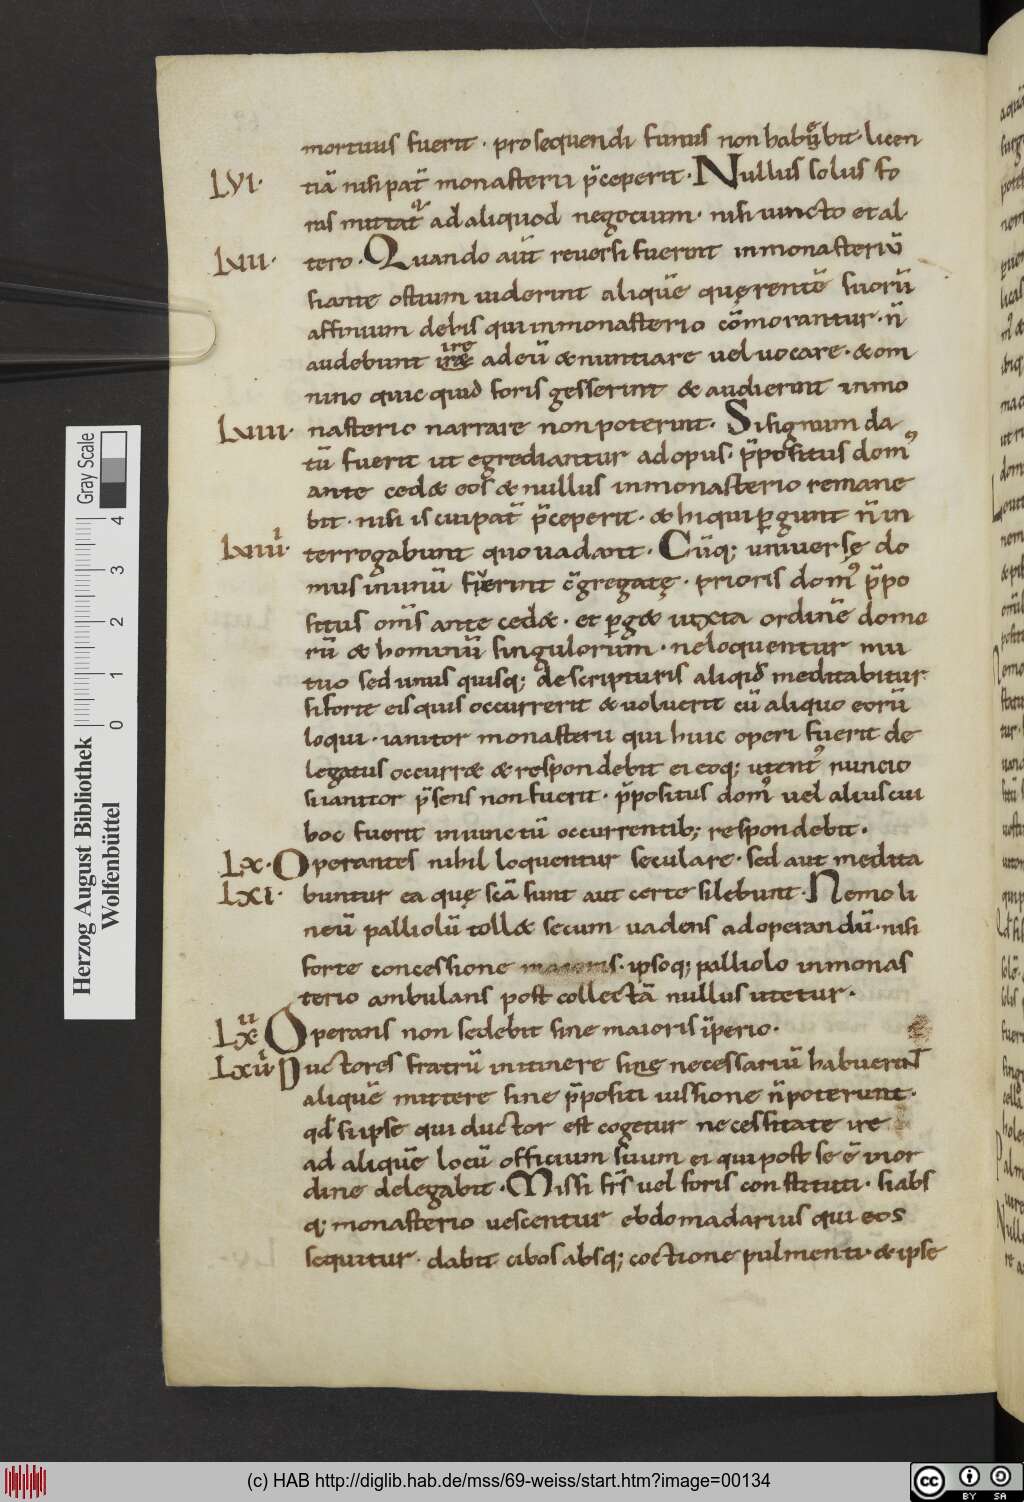 mortuus fuerit · prosequendi funus non habebit · licen
LVI· tiā nisi pat̄ monasterii p̄ceperit · Nullus solus fo
ras mittat᷑ ad aliquod negocium · nisi iuncto et al
LVII· tero · Quando aut̄ reuersi fuerint in monasteriū
si ante ostium uiderint aliquē querentē suorū
affinium de his qui in monasterio cōmorantur · n̄
audebunt ire ad eū & nuntiare uel uocare · & om
nino quicquid foris gesserint & audierint in mo
LVIII· nasterio narrare non poterint · Si signum da
tū fuerit ut egrediantur ad opus · p̄positus domꝰ
antecedæ eos & nullus in monasterio remane
bit · nisi is cui pat̄ p̄ceperit · & hi qui ꝑgunt n̄ in
LVIIII· terrogabunt quo uadant · Cūq; uniuersę do
mus in unū fuerint c̄gregatę · prioris domꝰ p̄po
situs om̄s antecedæ · et ꝑgæ iuxta ordinē domo
rū & hominū singulorum · ne loquentur mu
tuo sed unus quisq; de scripturis aliqid meditabitur
si forte eis quis occurrerit & uoluerit cū aliquo eorū
loqui · ianitor monasterii qui huic operi fuerit de
legatus occurræ & respondebit ei eoq; utent᷑ nuncio
si ianitor p̄sens non fuerit · p̄positus domꝰ uel alius cui
hoc fuerit iniunctū occurrentib; respondebit ·
LX· Operantes nihil loquentur seculare · sed aut medita
LXI· buntur ea quę scā sunt aut certe silebunt · Nemo li
neū palliolū tollæ secum uadens ad operandū · nisi
forte concessione maioris · ipsoq; palliolo in monas
terio ambulans post collectā nullus utetur ·
LXII Operans non sedebit sine maioris īperio ·
LXIII Ductores fratrū in itinere si necessariū habuerint
aliquē mittere sine p̄positi iussione n̄ poterunt ·
qd̄ si ipse qui ductor est cogetur necessitate ire
ad aliquē locū officium suum ei qui post se ē in or
dine delegabit · Missi fr̄s uel foris constituti · si abs
q; monasterio uescentur ebdomadarius qui eos
sequitur · dabit cibos absq; coctione pulmenti · & ipse
Herzog August Bibliothek
Wolfenbüttel
0 1 2 3 4
Gray Scale
(c) HAB http://diglib.hab.de/mss/69-weiss/start.htm?image=00134
cc BY SA